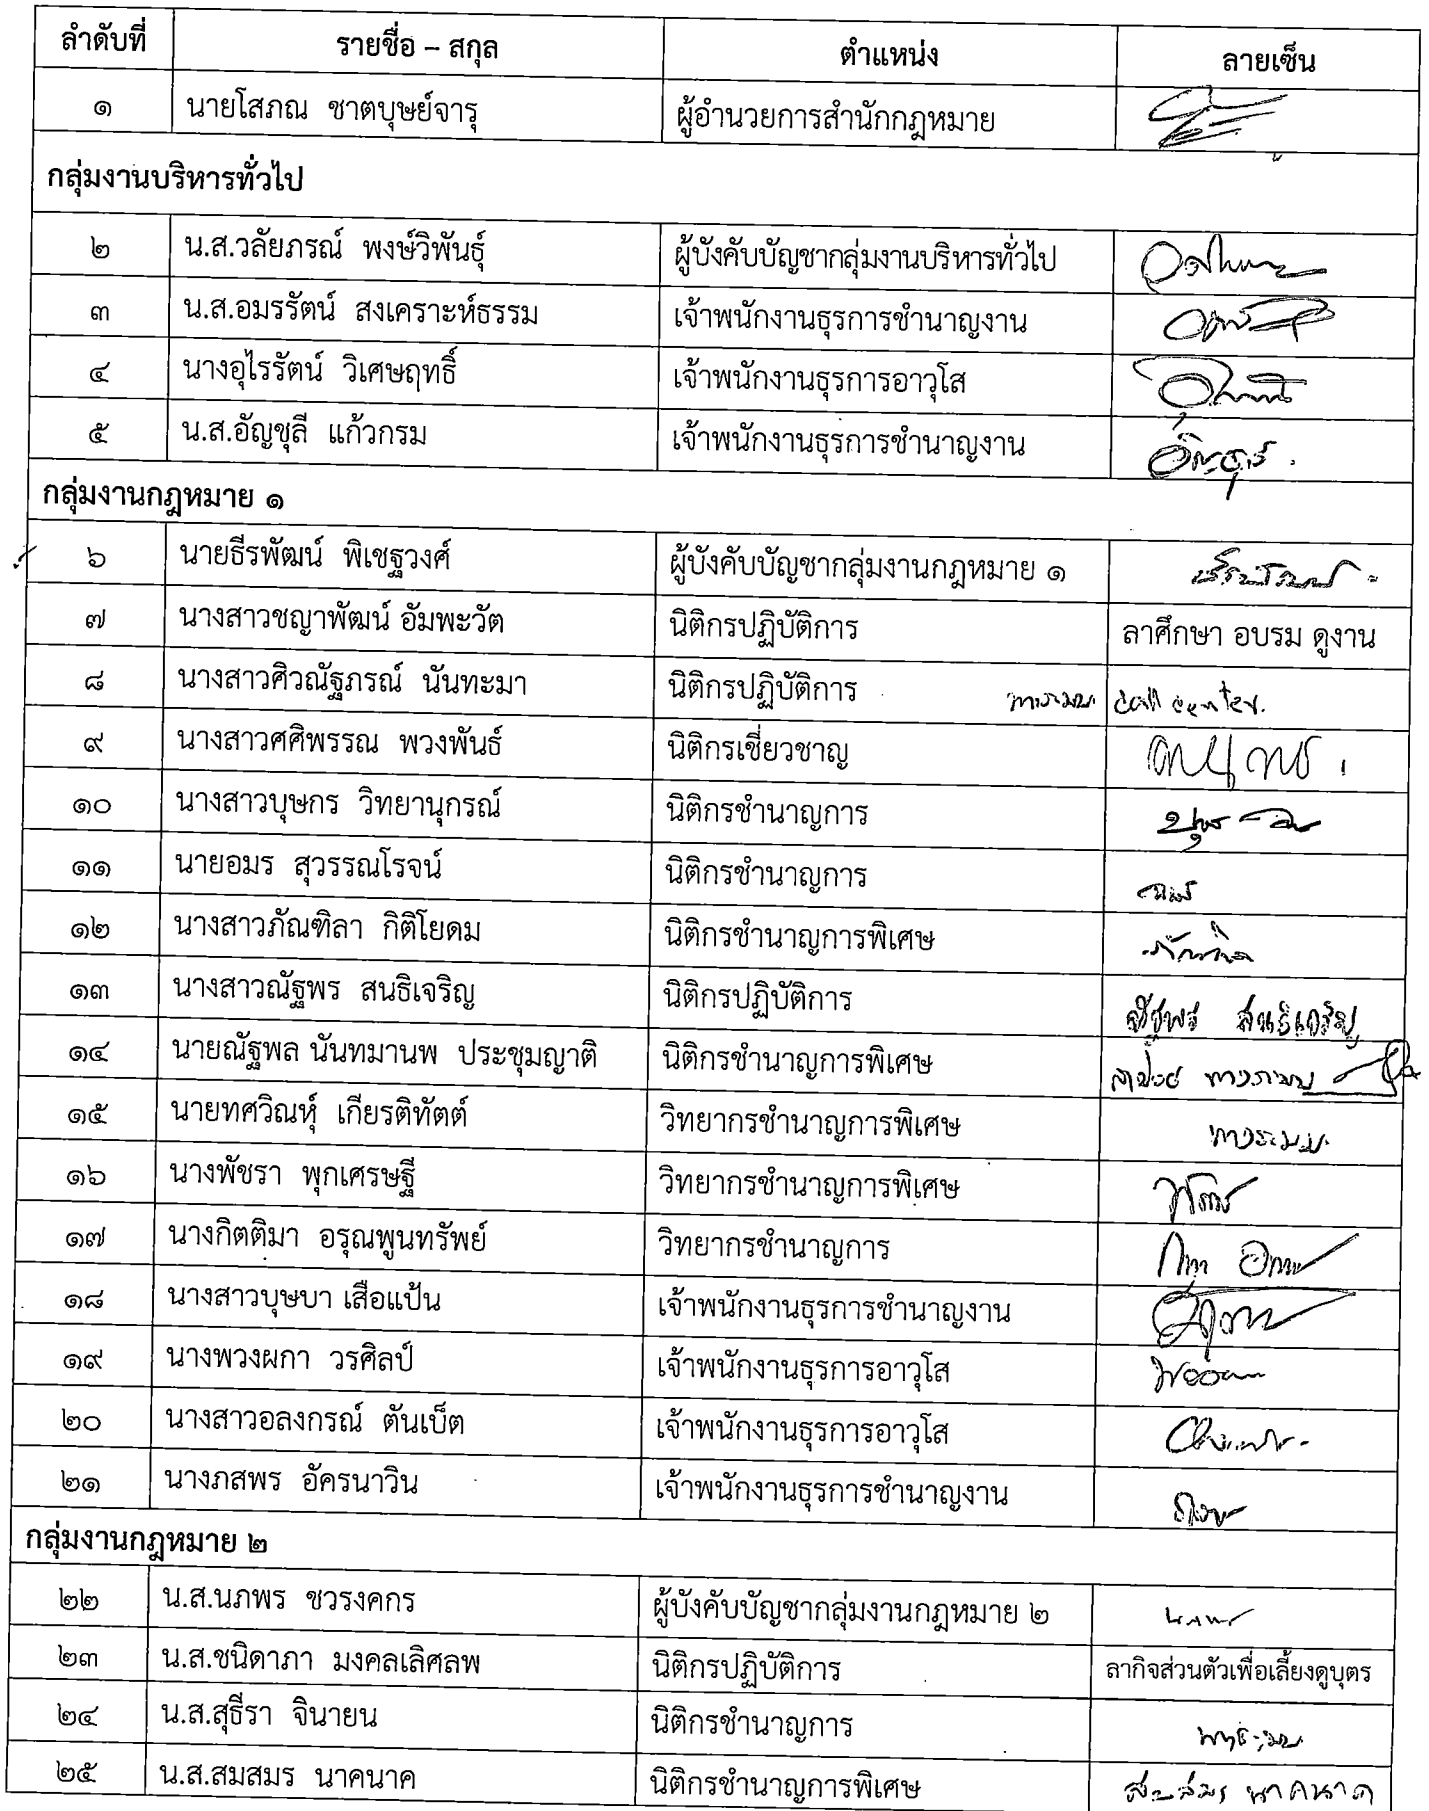 ลำดับที่ รายชื่อ – สกุล ตำแหน่ง ลายเซ็น
๑ นายโสภณ ชาตบุษย์จารุ ผู้อำนวยการสำนักกฎหมาย
กลุ่มงานบริหารทั่วไป
๒ น.ส.วลัยภรณ์ พงษ์วิพันธุ์ ผู้บังคับบัญชากลุ่มงานบริหารทั่วไป
๓ น.ส.อมรรัตน์ สงเคราะห์ธรรม เจ้าพนักงานธุรการชำนาญงาน
๔ นางอุไรรัตน์ วิเศษฤทธิ์ เจ้าพนักงานธุรการอาวุโส
๕ น.ส.อัญชุลี แก้วกรม เจ้าพนักงานธุรการชำนาญงาน
กลุ่มงานกฎหมาย ๑
๖ นายธีรพัฒน์ พิเชฐวงศ์ ผู้บังคับบัญชากลุ่มงานกฎหมาย ๑
๗ นางสาวชญาพัฒน์ อัมพะวัต นิติกรปฏิบัติการ ลาศึกษา อบรม ดูงาน
๘ นางสาวศิวณัฐภรณ์ นันทะมา นิติกรปฏิบัติการ call center.
๙ นางสาวศศิพรรณ พวงพันธ์ นิติกรเชี่ยวชาญ
๑๐ นางสาวบุษกร วิทยานุกรณ์ นิติกรชำนาญการ
๑๑ นายอมร สุวรรณโรจน์ นิติกรชำนาญการ
๑๒ นางสาวภัณฑิลา กิติโยดม นิติกรชำนาญการพิเศษ
๑๓ นางสาวณัฐพร สนธิเจริญ นิติกรปฏิบัติการ ณัฐพร สนธิเจริญ
๑๔ นายณัฐพล นันทมานพ ประชุมญาติ นิติกรชำนาญการพิเศษ
๑๕ นายทศวิณหุ์ เกียรติทัตต์ วิทยากรชำนาญการพิเศษ
๑๖ นางพัชรา พุกเศรษฐี วิทยากรชำนาญการพิเศษ
๑๗ นางกิตติมา อรุณพูนทรัพย์ วิทยากรชำนาญการ
๑๘ นางสาวบุษบา เสือแป้น เจ้าพนักงานธุรการชำนาญงาน
๑๙ นางพวงผกา วรศิลป์ เจ้าพนักงานธุรการอาวุโส
๒๐ นางสาวอลงกรณ์ ตันเบ็ต เจ้าพนักงานธุรการอาวุโส
๒๑ นางภสพร อัครนาวิน เจ้าพนักงานธุรการชำนาญงาน
กลุ่มงานกฎหมาย ๒
๒๒ น.ส.นภพร ชวรงคกร ผู้บังคับบัญชากลุ่มงานกฎหมาย ๒ นภพร
๒๓ น.ส.ชนิดาภา มงคลเลิศลพ นิติกรปฏิบัติการ ลากิจส่วนตัวเพื่อเลี้ยงดูบุตร
๒๔ น.ส.สุธีรา จินายน นิติกรชำนาญการ
๒๕ น.ส.สมสมร นาคนาค นิติกรชำนาญการพิเศษ สมสมร นาคนาค